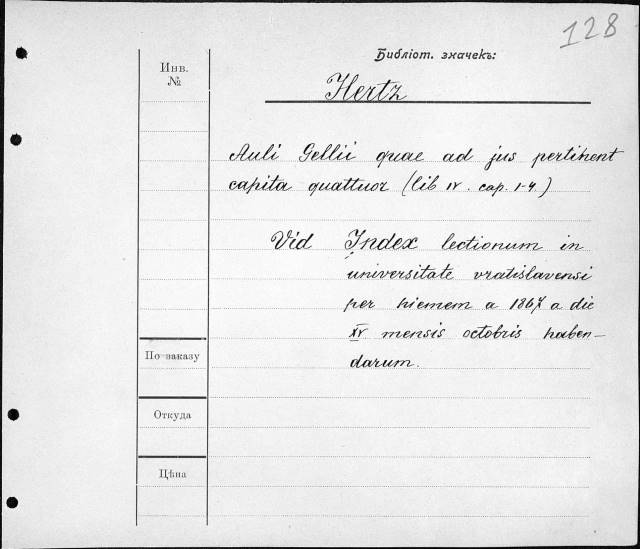 128
Библіот. значекъ:
Инв.
№
Hertz
Auli Gellii quae ad jus pertinent
capita quattuor (lib IV. cap. 1-4.)
Vid Index lectionum in
universitate vratislavensi
per hiemem a 1867 a die
XV mensis octobris haben-
darum.
По заказу
Откуда
Цѣна